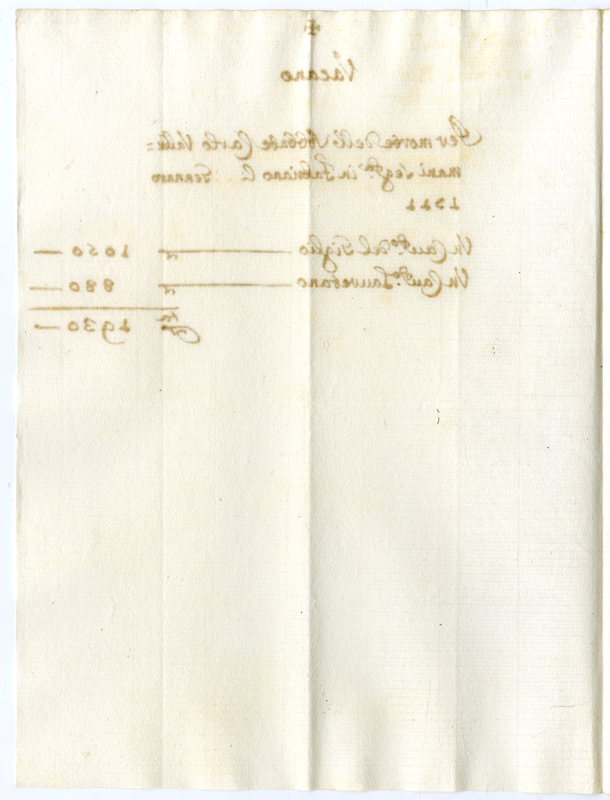 Vacano
Per morte dell' Abbate Carlo Valle=
mani seg.ta in Fabriano li Gennaro
1711
Un Cau.to del Giglio 1050
Un Cau.to Lauretano 880
1930